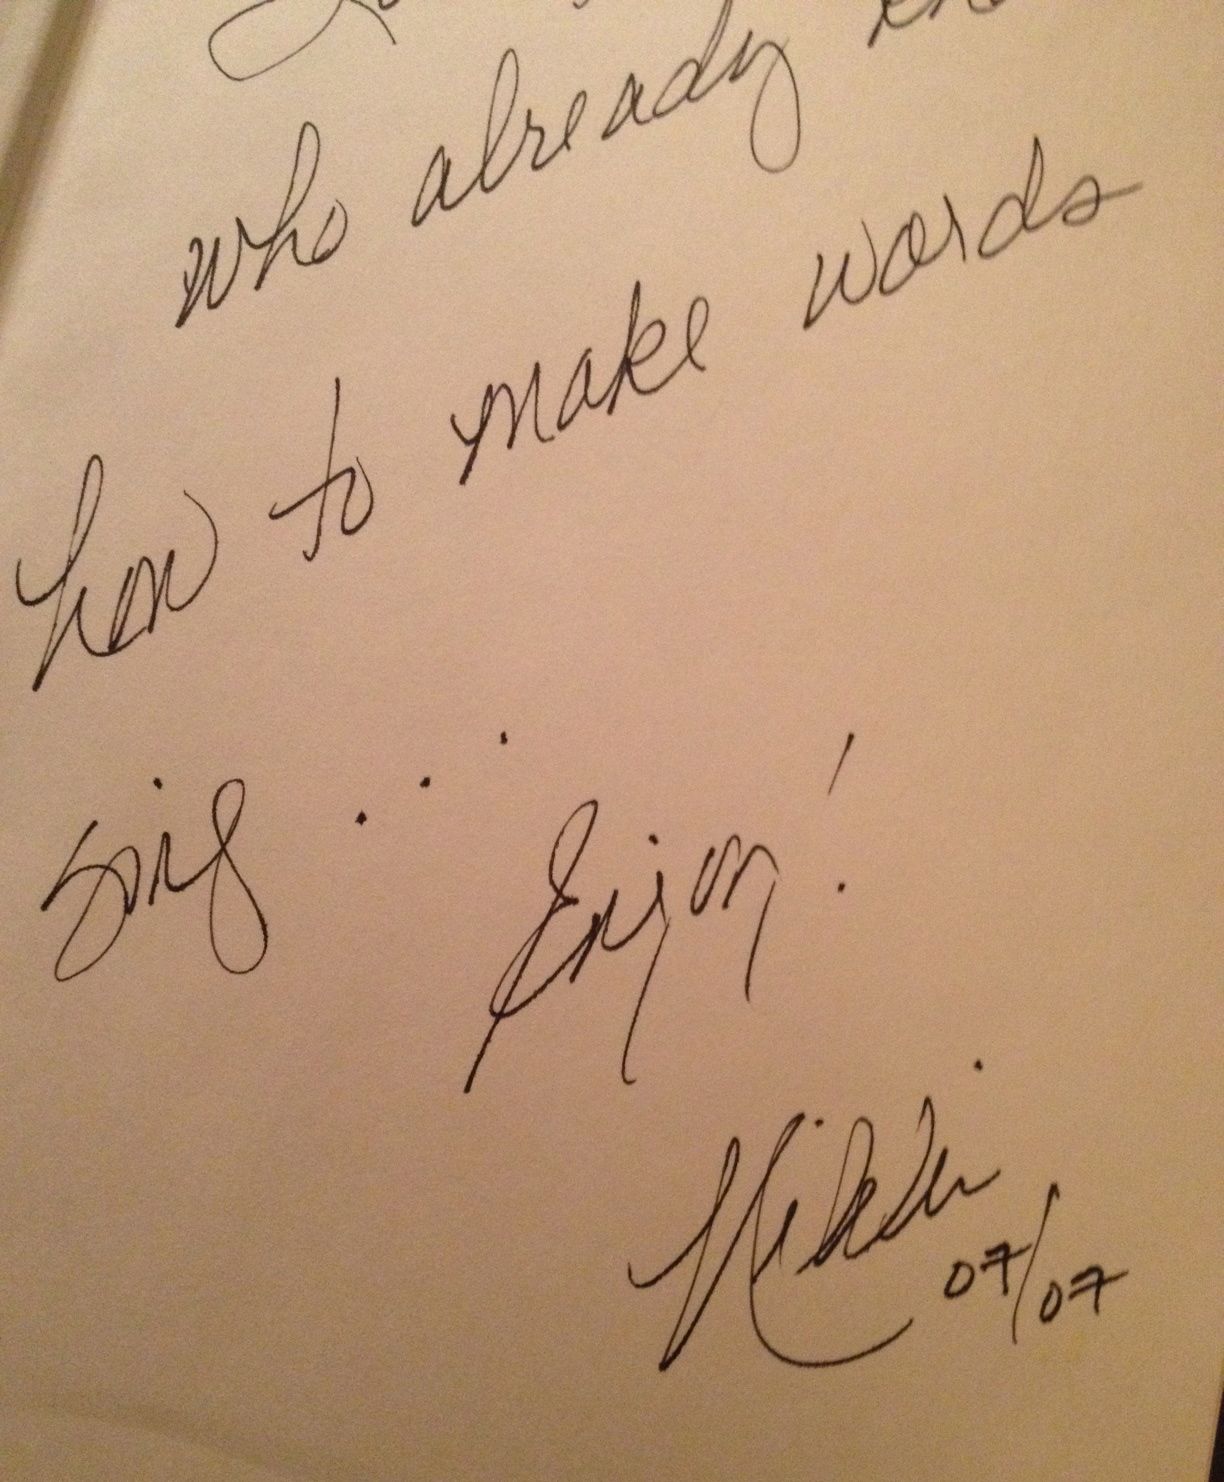 who already
how to make words
sing... Enjoy!
Nikki
07/07